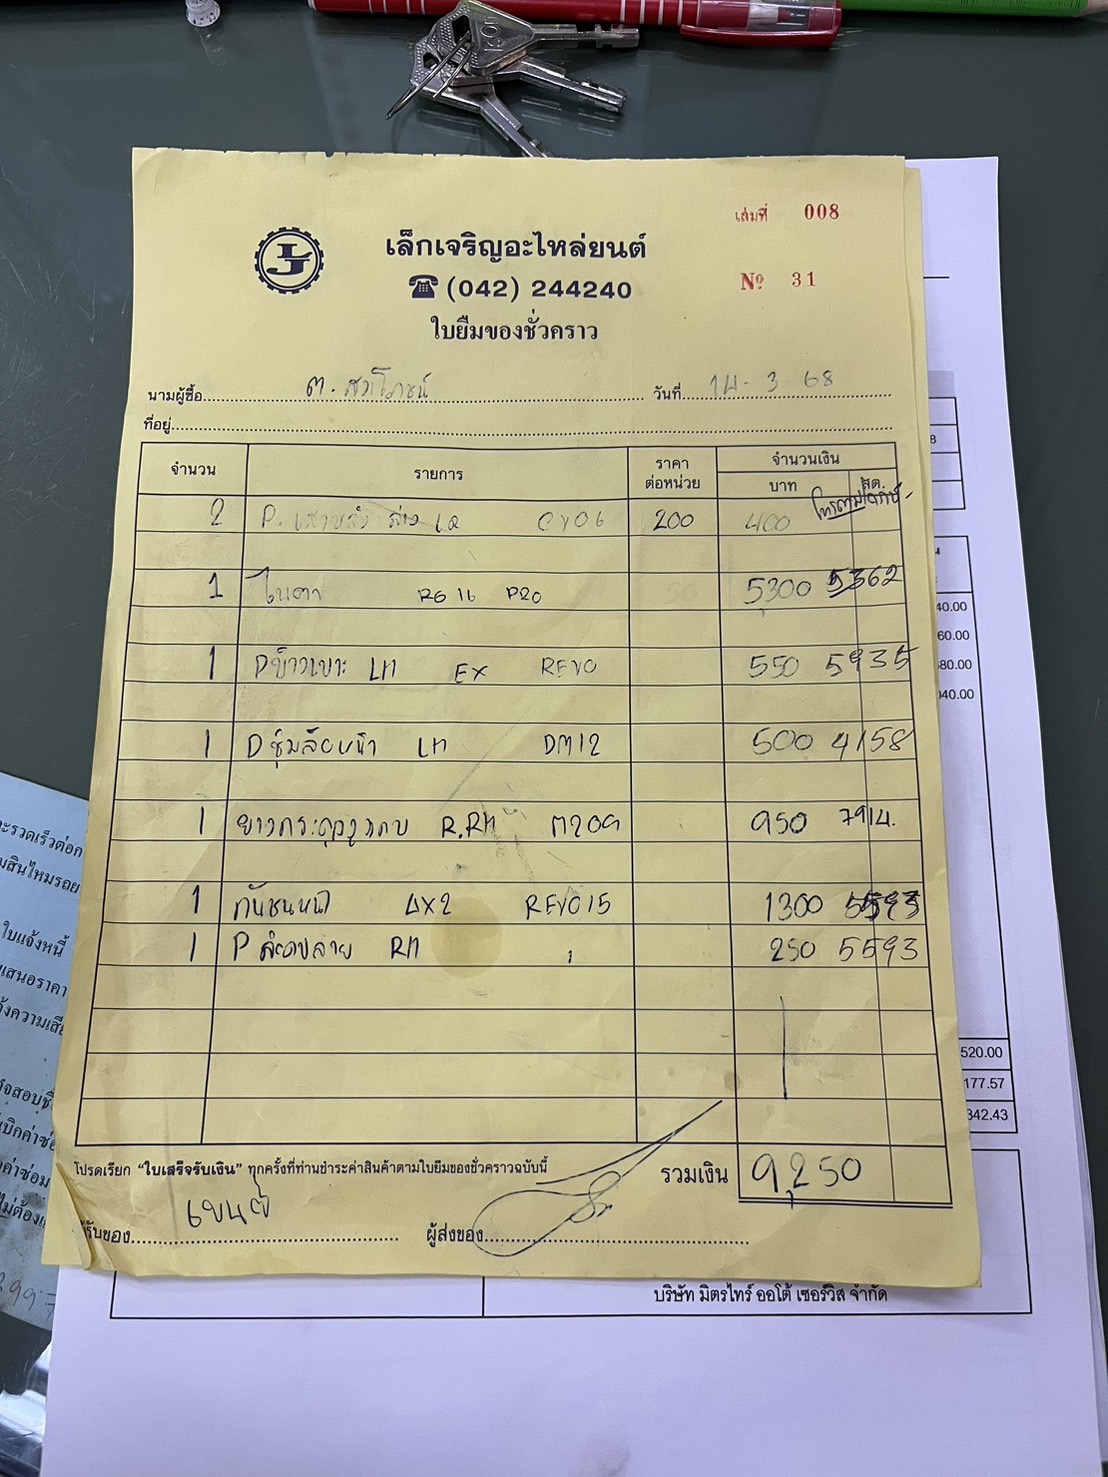 เล่มที่ 008
เล็กเจริญอะไหล่ยนต์
LJ
(042) 244240
Nº 31
ใบยืมของชั่วคราว
นามผู้ซื้อ ต. วันที่ 14-3 68
ที่อยู่
จำนวน รายการ ราคาต่อหน่วย จำนวนเงิน
บาท สต.
2 P. ล่าง LR CV06 200 400
1 ไฟตา RG 16 P20 5300 5362
1 Dข้าวเบาะ LH EX REVO 550 5935
1 D ซุ้มล้อหน้า LH DM12 500 4158
1 ยางกระดูงูขอบ R.RH M209 950 7914.
1 กันชนหน้า 4X2 REVO15 1300 5593
1 P RH " 250 5593
โปรดเรียก "ใบเสร็จรับเงิน" ทุกครั้งที่ท่านชำระค่าสินค้าตามใบยืมของชั่วคราวฉบับนี้
รวมเงิน 9,250
ผู้รับของ ผู้ส่งของ
บริษัท มิตรไทร์ ออโต้ เซอร์วิส จำกัด
8
น
40.00
60.00
80.00
040.00
520.00
177.57
342.43
ะรวดเร็วต่อก
มสินไหมรถย
ใบแจ้งหนี้
เสนอราคา
จ้งความเสีย
จสอบชื่
บิกค่าซ่อ
ค่าซ่อม
ไม่ต้อง
997